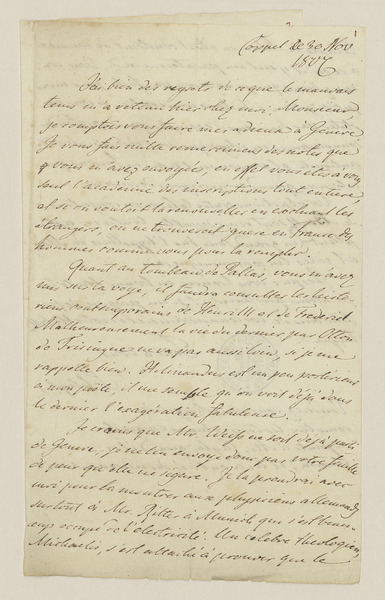 Coppet le 30 Nov
1807
J'ai bien des regrets de ce que le mauvais
tems m'a retenu hier chez moi, Monsieur,
je comptois vous faire mes adieux à Genève
Je vous fais mille remerciemens des notes que
vous m'avez envoyées, en effet vous êtes à vous
seul l'académie des inscriptions tout entière,
et si on vouloit la renouveller en excluant les
étrangers, on ne trouveroit guère en France des
hommes comme vous pour la remplir.
Quant au tombeau de Pallas, vous m'avez
mis sur la voye, il faudra consulter les histo-
riens contemporains de Henri III et de Frédéric
Malheureusement la vie du dernier par Otton
de Frisingue ne va pas aussi loin, si je me
rappelle bien. Helinandus est un peu postérieur
à mon poète, il me semble qu'on voit déjà dans
le dernier l'exagération fabuleuse.
Je crains que Mr. Weiss ne soit déjà parti
de Genève, je ne lui envoye donc pas votre feuille
de peur qu'elle ne s'égare. Je la prendrai avec
moi pour la montrer aux physiciens allemands
surtout à Mr. Ritter à Munich qui s'est beau-
coup occupé de l'électricité. Un célèbre théologien,
Michaelis, s'est attaché à prouver que le